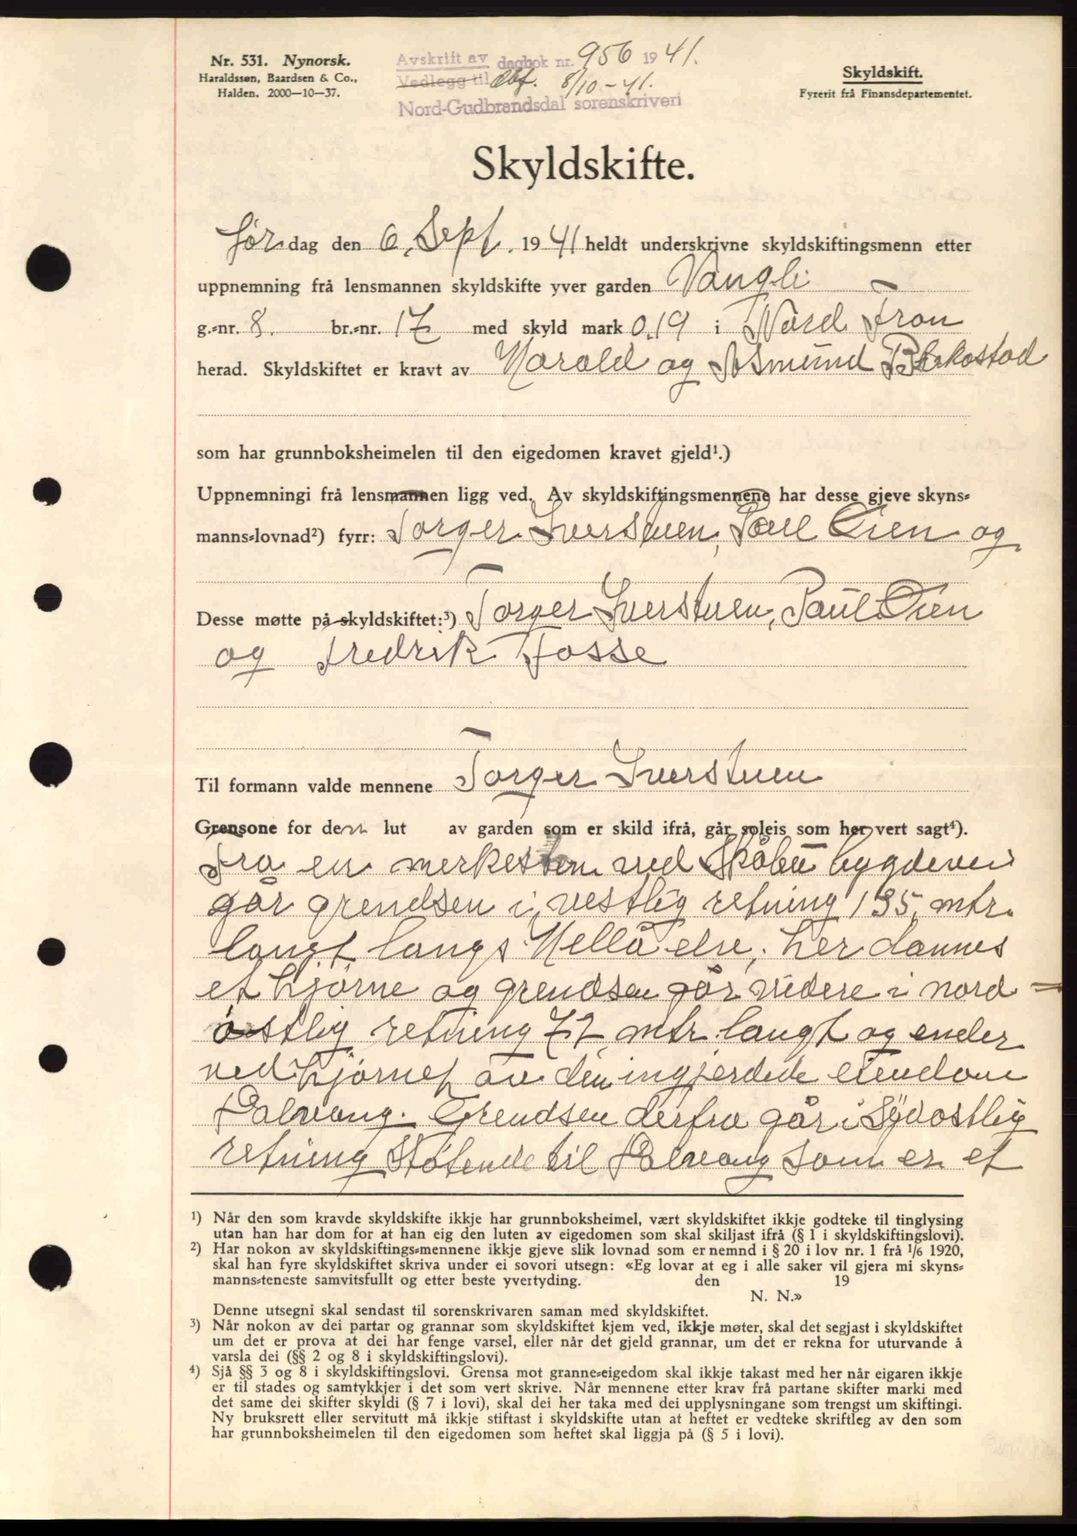 Nr. 531. Nynorsk.
Haraldssen, Baardsen & Co.,
Halden. 2000—10—37.
Avskrift av dagbok nr. 956 1941.
Vedlegg til dbf. 8/10-41.
Nord-Gudbrandsdal sorenskriveri
Skyldskift.
Fyrerit frå Finansdepartementet.
Skyldskifte.
før dag den 6. Sept. 1941 heldt underskrivne skyldskiftingsmenn etter
uppnemning frå lensmannen skyldskifte yver garden Vangli
g.=nr. 8. br.=nr. 17 med skyld mark 0,19 i Nord Fron
herad. Skyldskiftet er kravt av Harald og Asmund Blekastad
som har grunnboksheimelen til den eigedomen kravet gjeld¹.)
Uppnemningi frå lensmannen ligg ved. Av skyldskiftingsmennene har desse gjeve skyns=
manns=lovnad²) fyrr: Torger Iverstuen, Paul Øien og
Desse møtte på skyldskiftet:³) Torger Iverstuen, Paul Øien
og Fredrik Fosse
Til formann valde mennene Torger Iverstuen
Grensone for den lut av garden som er skild ifrå, går soleis som her vert sagt⁴).
Fra en merkesten ved Skåbu bygdevei
går grendsen i vestlig retning 135 mtr.
langt langs Hellå elv, her dannes
et hjørne og grendsen går videre i nord=
østlig retning 72 mtr. langt og ender
ved hjørnet av den ingjerdede eiendom
Halvang. Grendsen derfra går i Sydostlig
retning støtende til Halvang som er et
¹) Når den som kravde skyldskifte ikkje har grunnboksheimel, vært skyldskiftet ikkje godteke til tinglysing
utan han har dom for at han eig den luten av eigedomen som skal skiljast ifrå (§ 1 i skyldskiftingslovi).
²) Har nokon av skyldskiftings=mennene ikkje gjeve slik lovnad som er nemnd i § 20 i lov nr. 1 frå 1/6 1920,
skal han fyre skyldskiftet skriva under ei sovori utsegn: «Eg lovar at eg i alle saker vil gjera mi skyns=
manns=teneste samvitsfullt og etter beste yvertyding. den 19
N. N.»
Denne utsegni skal sendast til sorenskrivaren saman med skyldskiftet.
³) Når nokon av dei partar og grannar som skyldskiftet kjem ved, ikkje møter, skal det segjast i skyldskiftet
um det er prova at dei har fenge varsel, eller når det gjeld grannar, um det er rekna for uturvande å
varsla dei (§§ 2 og 8 i skyldskiftingslovi).
⁴) Sjå §§ 3 og 8 i skyldskiftingslovi. Grensa mot granne=eigedom skal ikkje takast med her når eigaren ikkje
er til stades og samtykkjer i det som vert skrive. Når mennene etter krav frå partane skifter marki med
det same dei skifter skyldi (§ 7 i lovi), skal dei her taka med dei upplysningane som trengst um skiftingi.
Ny bruksrett eller servitutt må ikkje stiftast i skyldskifte utan at heftet er vedteke skriftleg av den som
har grunnboksheimelen til den eigedomen som heftet skal liggja på (§ 5 i lovi).